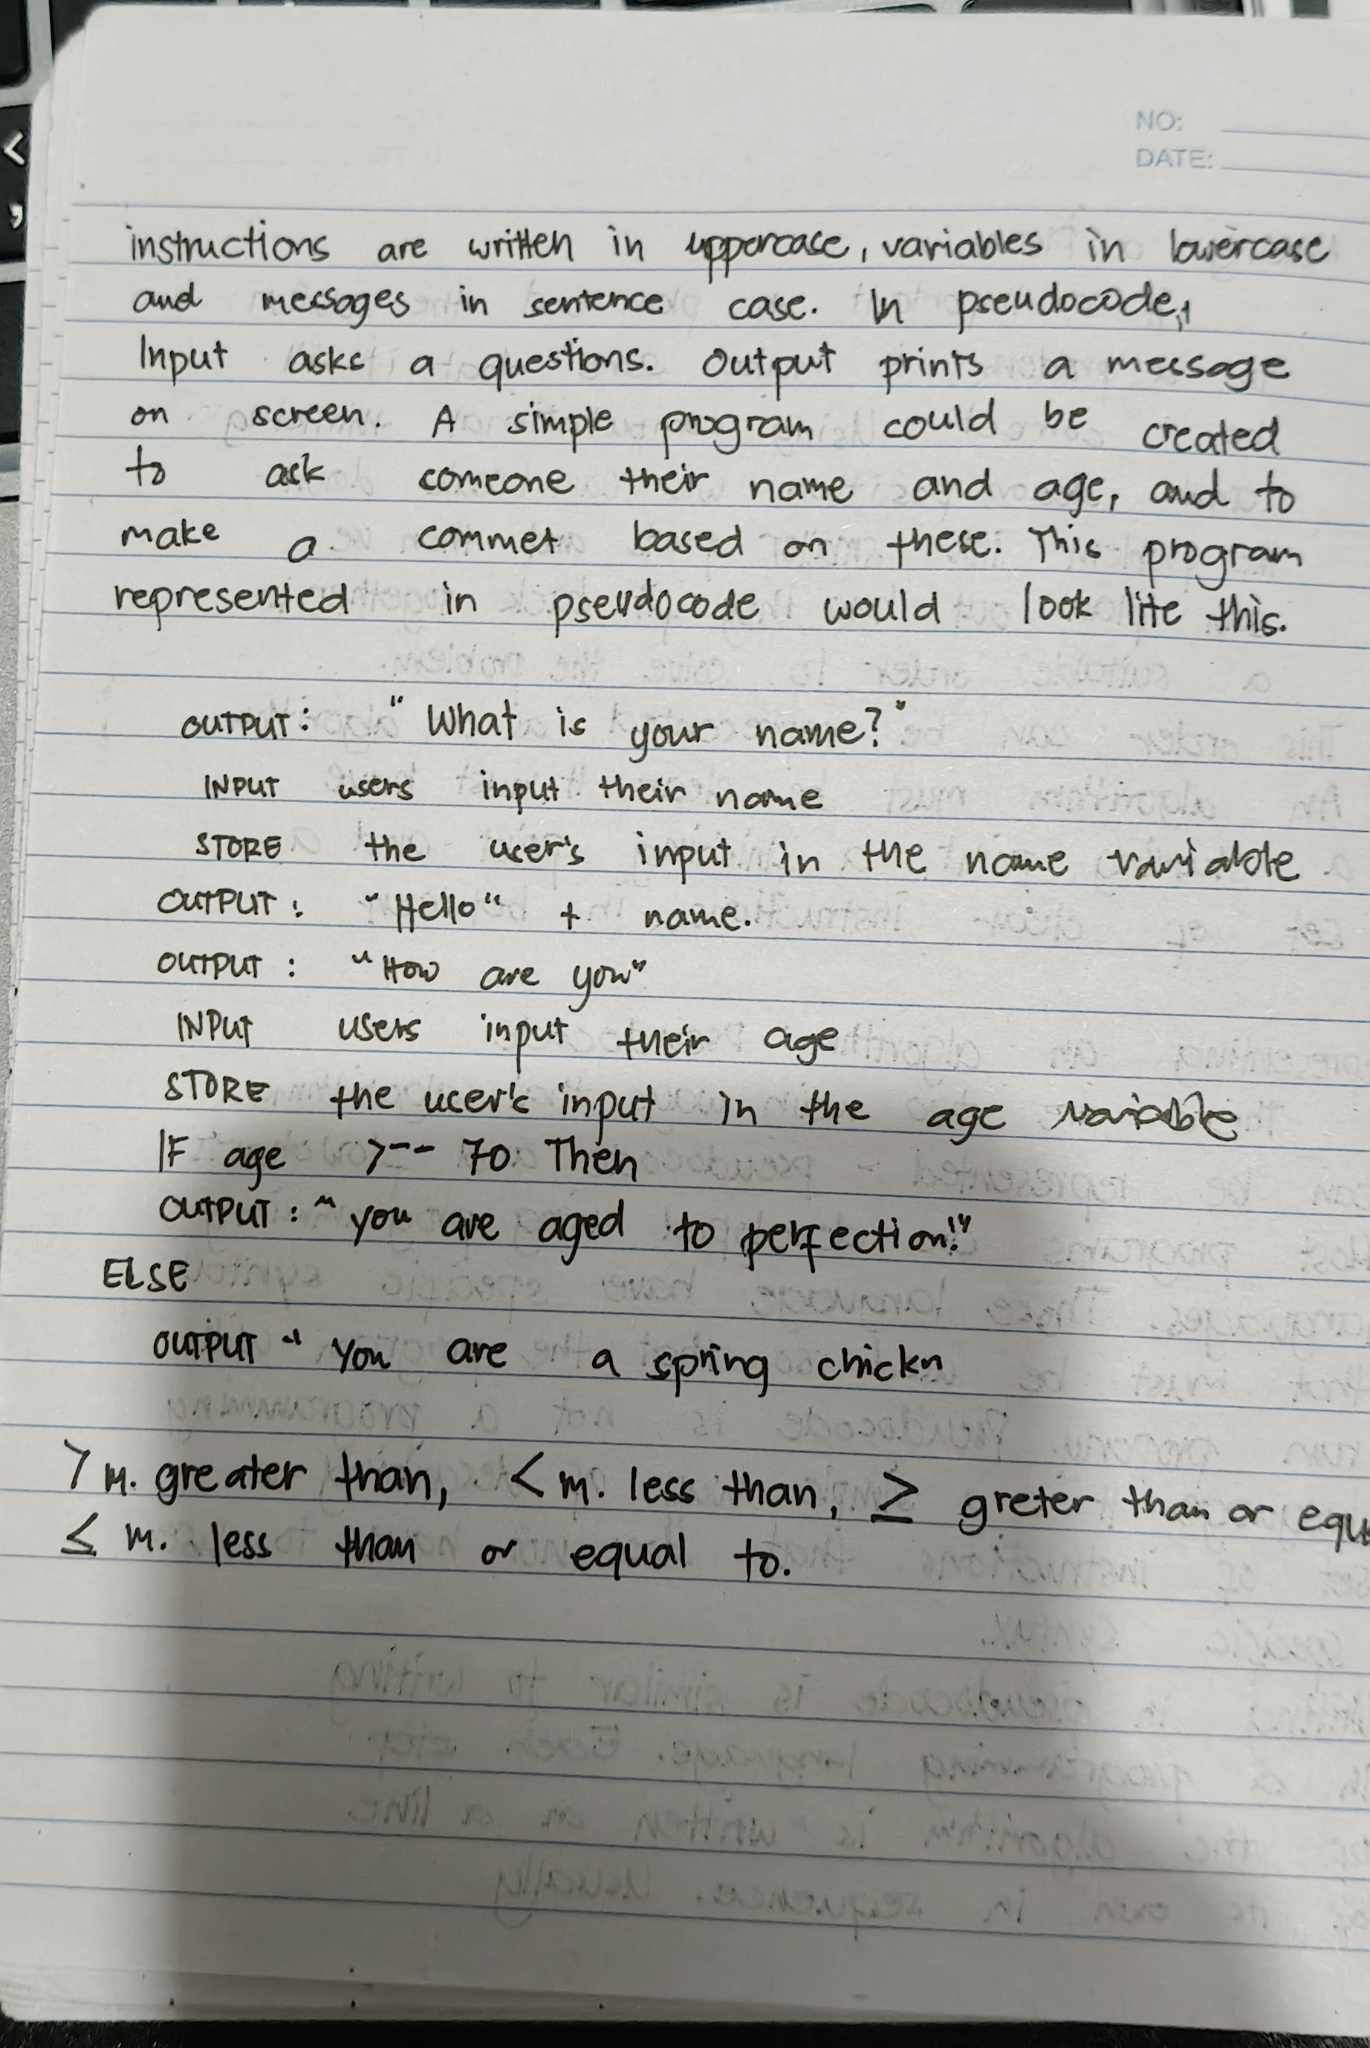 NO:
DATE:
instructions are written in uppercase, variables in lowercase
and messages in sentence case. In pseudocode,
Input asks a questions. Output prints a message
on screen. A simple program could be created
to ask someone their name and age, and to
make a commet based on these. This program
represented in pseudocode would look lite this.
OUTPUT: "What is your name?"
INPUT users input their name
STORE the user's input in the name variable
OUTPUT: "Hello" + name.
OUTPUT: "How are you"
INPUT users input their age
STORE the user's input in the age variable
IF age >-- 70 Then
OUTPUT: "you are aged to perfection!"
ELSE
OUTPUT " you are a spring chickn
> m. greater than, < m. less than, ≥ greter than or equ
≤ m. less than or equal to.